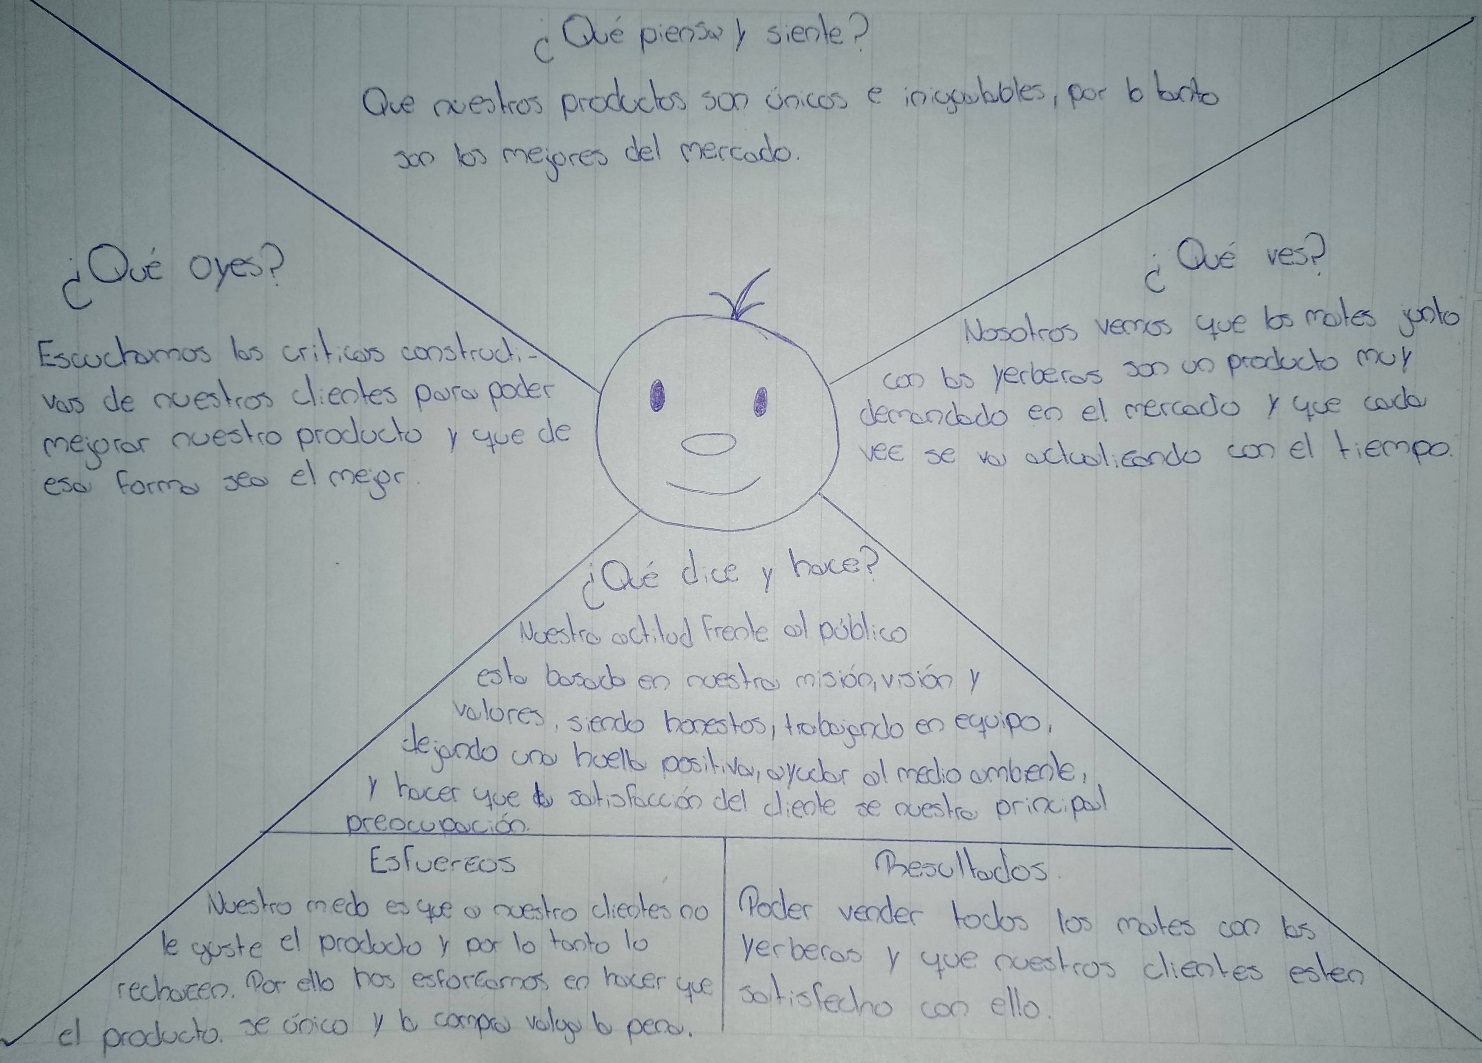 ¿Qué piensa y siente?
Que nuestros productos son únicos e inigualables, por lo tanto
son los mejores del mercado.
¿Qué oyes?
Escuchamos las criticas constructi-
vas de nuestros clientes para poder
mejorar nuestro producto y que de
esa forma sea el mejor.
¿Qué ves?
Nosotros vemos que los mates junto
con los yerberas son un producto muy
demandado en el mercado y que cada
vez se va actualizando con el tiempo.
¿Qué dice y hace?
Nuestra actitud frente al público
esta basada en nuestra misión, visión y
valores, siendo honestos, trabajando en equipo,
dejando una huella positiva, ayudar al medio ambiente,
y hacer que la satisfacción del cliente se nuestra principal
preocupación.
Esfuerzos
Nuestro miedo es que a nuestro clientes no
le guste el producto y por lo tanto lo
rechazen. Por ello nos esforzamos en hacer que
el producto. se único y la compra valga la pena.
Resultados.
Poder vender todos los mates con los
yerberas y que nuestros clientes esten
satisfecho con ello.